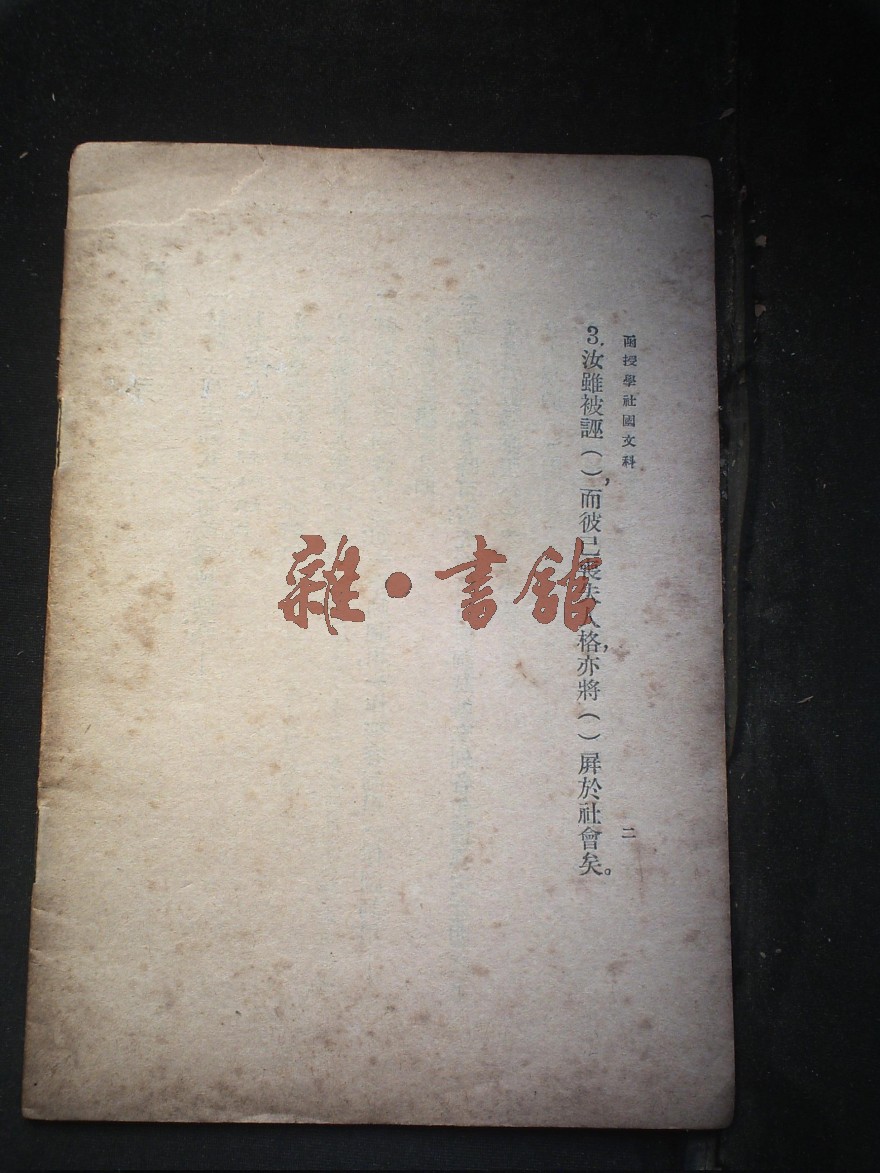 函授學社國文科
二
3.汝雖被誣（ ），而彼已喪失人格，亦將（ ）屛於社會矣。
雜·書館